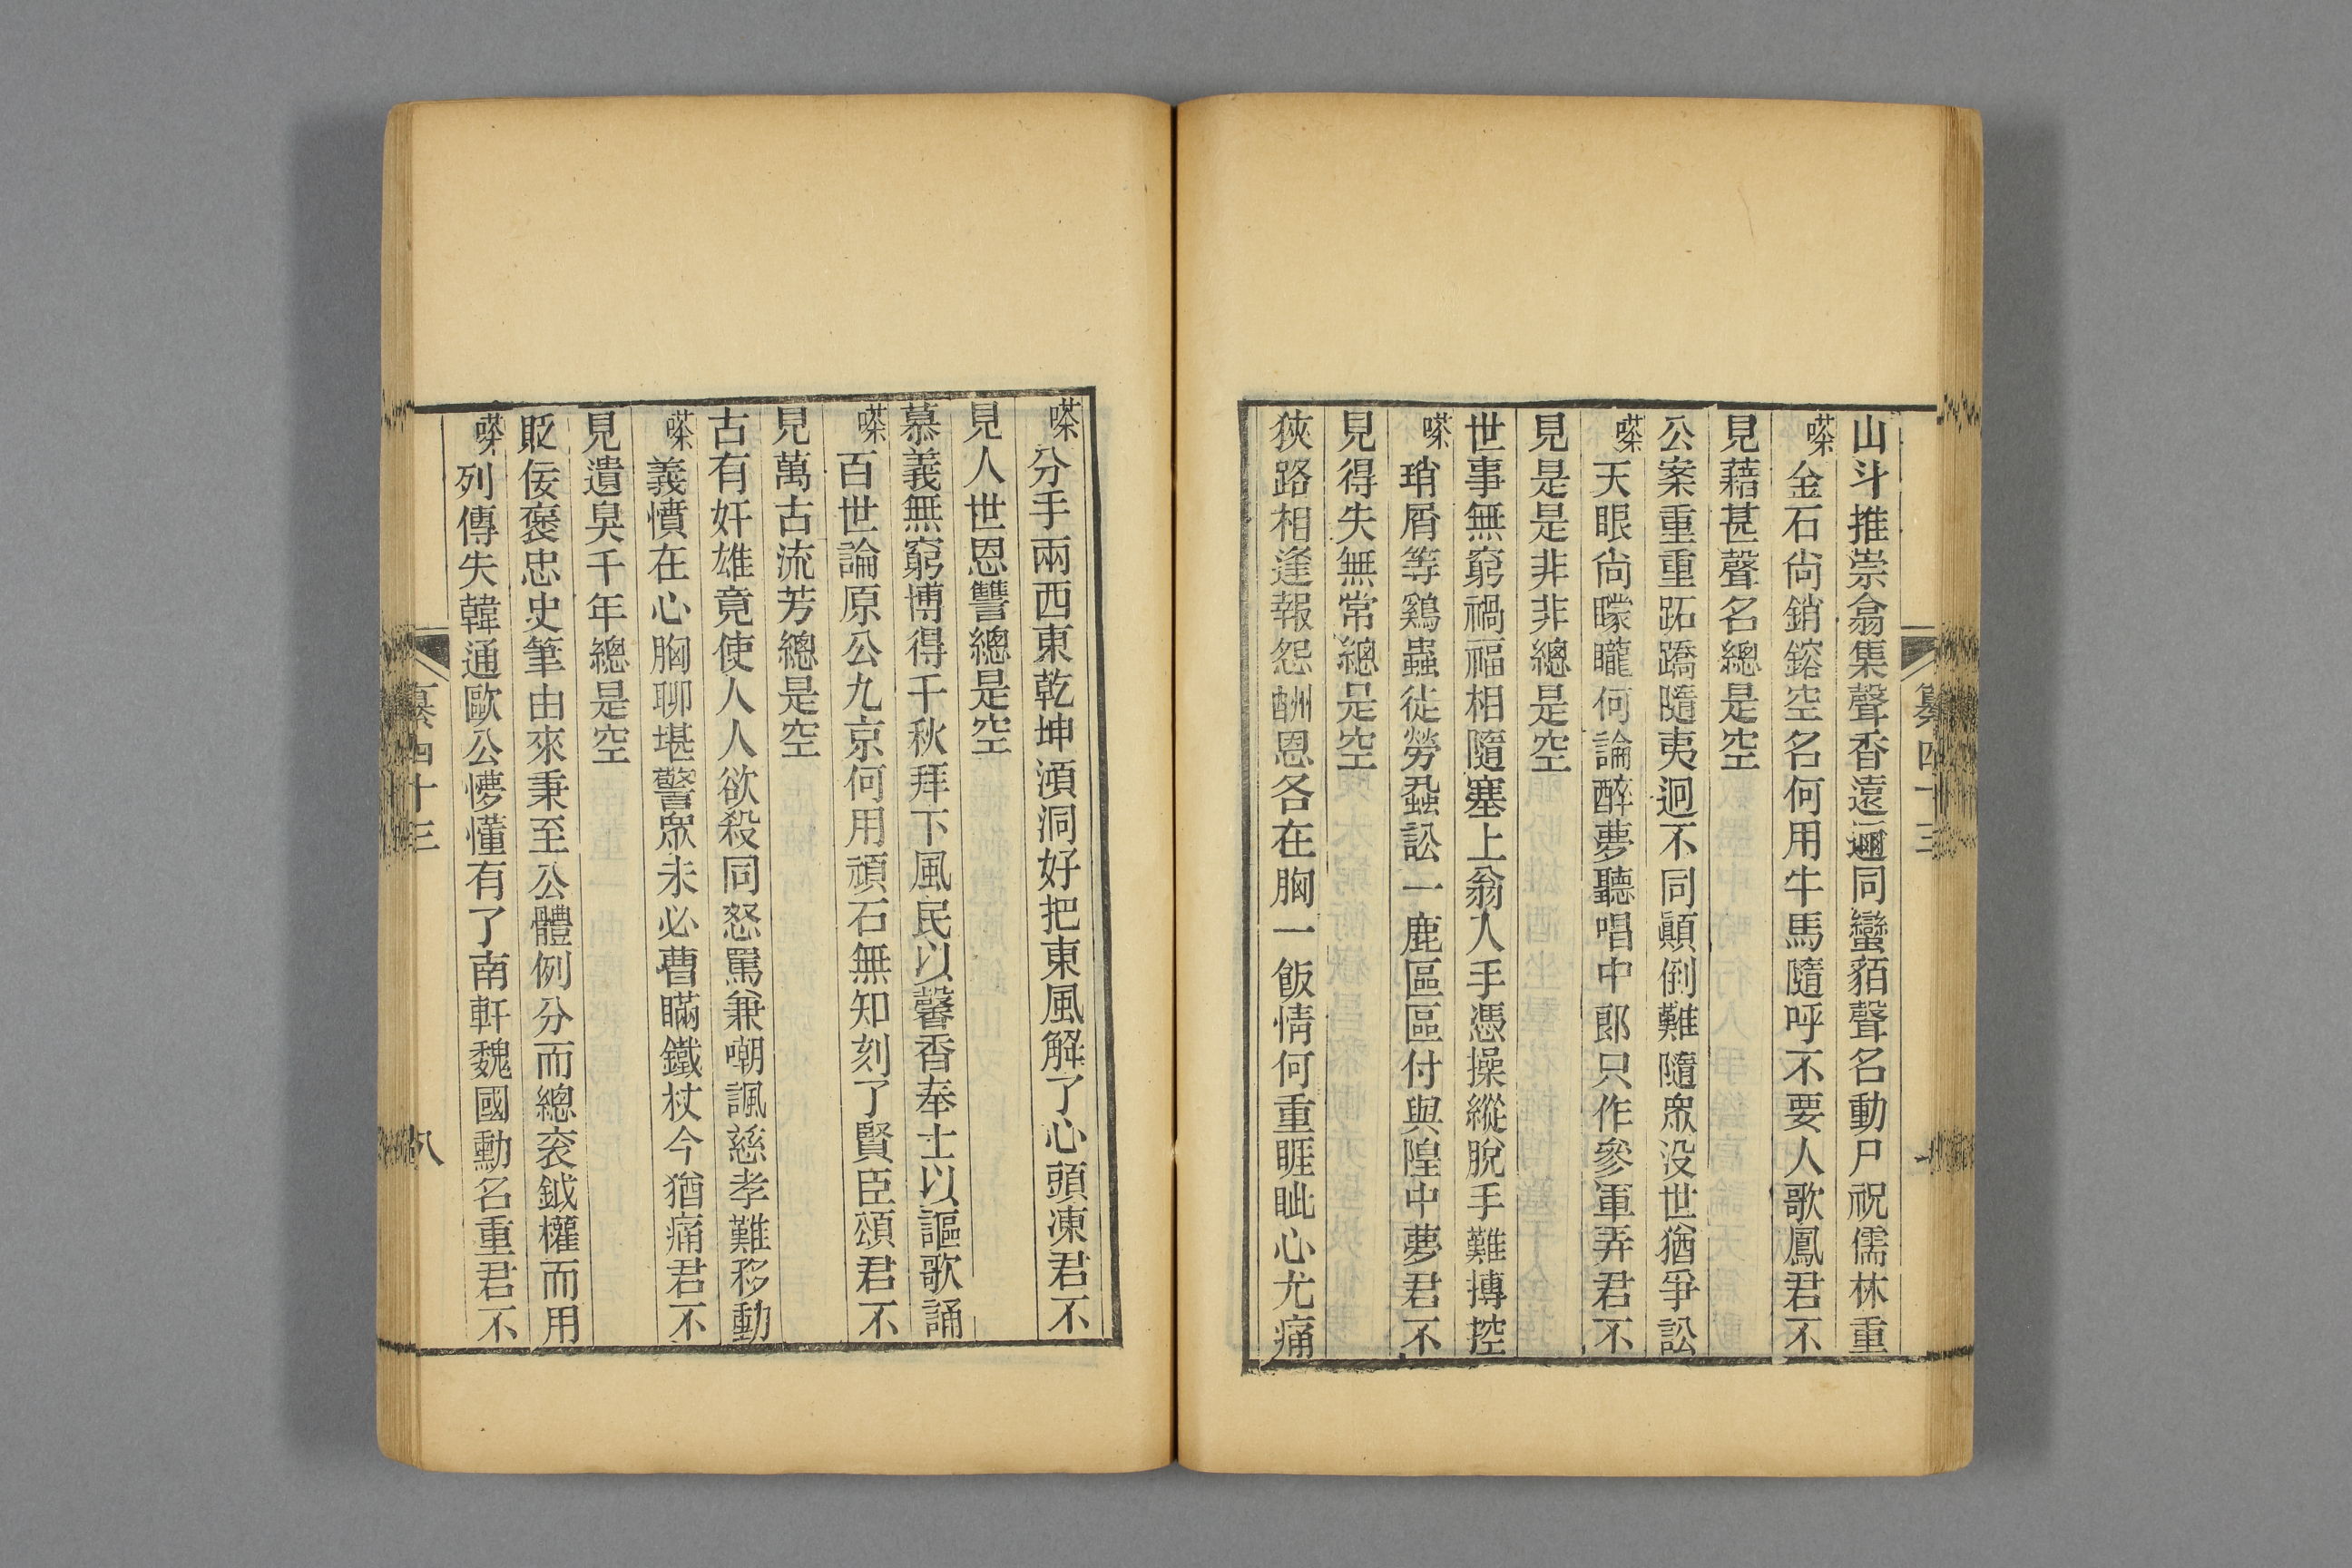 山斗推崇翕集聲香遠邇同蠻貊聲名動尸祝儒林重
嗏金石尙銷鎔空名何用牛馬隨呼不要人歌鳳君不
見藉甚聲名總是空
公案重重跖蹻隨夷迥不同顚倒難隨衆没世猶爭訟
嗏天眼尙矇矓何論醉夢聽唱中郎只作參軍弄君不
見是是非非總是空
世事無窮禍福相隨塞上翁人手憑操縱脫手難摶控
嗏瑣屑等鷄蟲徒勞蝨訟一鹿區區付與隍中夢君不
見得失無常總是空
狹路相逢報怨酬恩各在胸一飯情何重睚眦心尤痛
嗏分手兩西東乾坤澒洞好把東風解了心頭凍君不
見人世恩讐總是空
慕義無窮博得千秋拜下風民以馨香奉士以謳歌誦
嗏百世論原公九京何用頑石無知刻了賢臣頌君不
見萬古流芳總是空
古有奸雄竟使人人欲殺同怒罵兼嘲諷慈孝難移動
嗏義憤在心胸聊堪警衆未必曹瞞鐵杖今猶痛君不
見遺臭千年總是空
貶佞褒忠史筆由來秉至公體例分而總袞鉞權而用
嗏列傳失韓通歐公懜懂有了南軒魏國勳名重君不
纂四十三
八